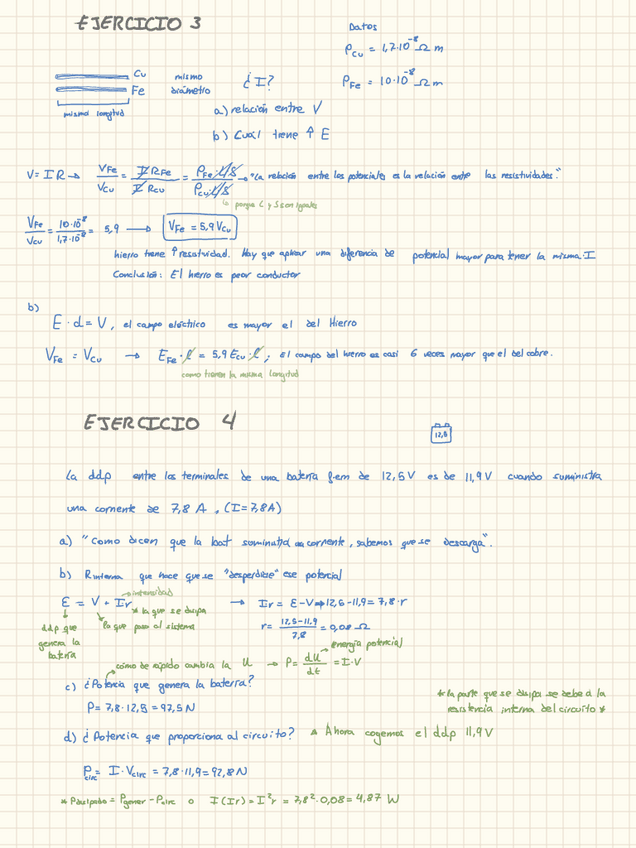 EJERCICIO 3
Datos
ρCu = 1,7·10⁻⁸ Ω m
ρFe = 10·10⁻⁸ Ω m
Cu
Fe
mismo
diámetro
misma longitud
¿I?
a) relación entre V
b) Cuál tiene ↑ E
V = I R → VFe/VCu = I RFe/I RCu = ρFe·L/S / ρCu·L/S → "La relación entre los potenciales es la relación entre las resistividades."
porque L y S son iguales
VFe/VCu = 10·10⁻⁸/1,7·10⁻⁸ = 5,9 → VFe = 5,9 VCu
hierro tiene ↑ resistividad. Hay que aplicar una diferencia de potencial mayor para tener la misma I
Conclusión: El hierro es peor conductor
b)
E · d = V, el campo eléctrico es mayor el del Hierro
VFe = VCu → EFe · l = 5,9 ECu · l, el campo del hierro es casi 6 veces mayor que el del cobre.
como tienen la misma longitud
EJERCICIO 4
12,5
La ddp entre los terminales de una batería fem de 12,5V es de 11,9V cuando suministra
una corriente de 7,8 A. (I = 7,8A)
a) "Como dicen que la bat suministra corriente, sabemos que se descarga".
b) Rinterna que hace que se "desperdicie" ese potencial
intensidad
ε = V + Ir → Ir = ε - V ⇒ 12,5 - 11,9 = 7,8 · r
* la que se disipa
ddp que genera la batería
la que pasa al sistema
r = 12,5-11,9/7,8 = 0,08 Ω
energía potencial
cómo de rápido cambia la U → P = dU/dt = I·V
c) ¿Potencia que genera la batería?
P = 7,8 · 12,5 = 97,5 N
* la parte que se disipa se debe a la
resistencia interna del circuito *
d) ¿Potencia que proporciona al circuito? * Ahora cogemos el ddp 11,9V
Pcirc = I · Vcirc = 7,8 · 11,9 = 92,8 N
* Pdisipada = Pgener - Pcirc o I(Ir) = I²r = 7,8² · 0,08 = 4,87 W